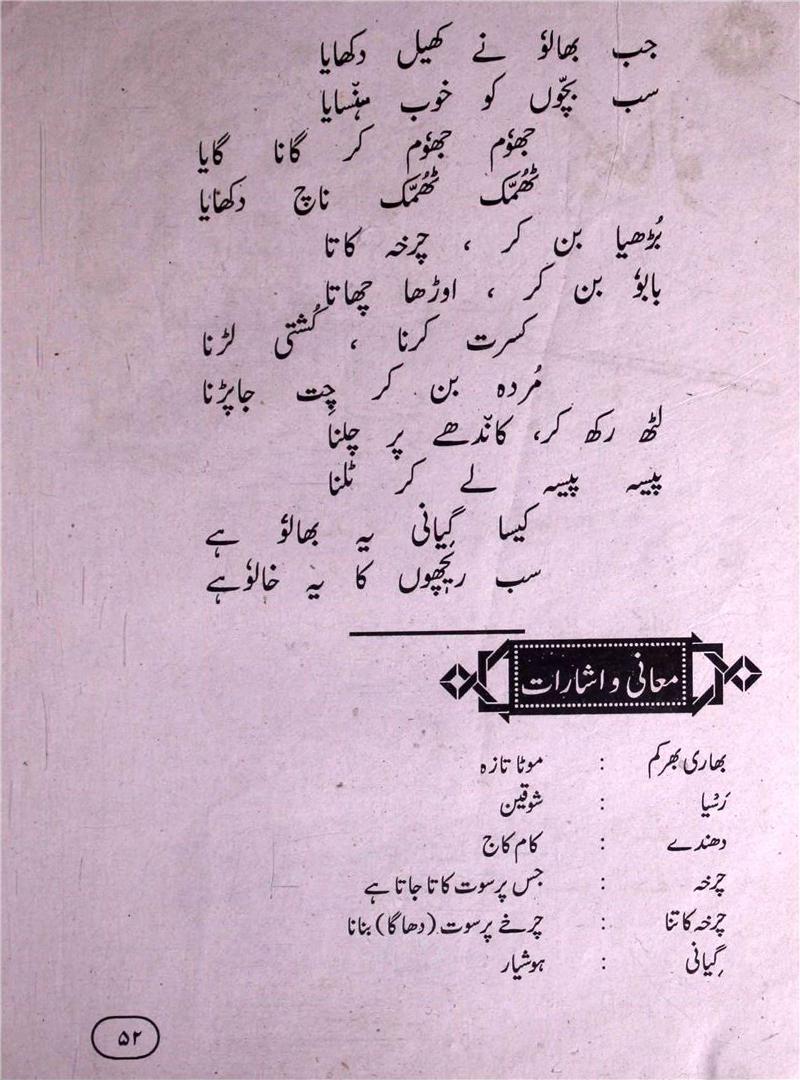 جب بھالوٗ نے کھیل دکھایا
سب بچّوں کو خوب ہنسایا
جھوٗم جھوٗم کر گانا گایا
ٹھُمّک ٹھُمّک ناچ دکھایا
بُڑھیا بن کر ، چرخہ کاتا
بابوٗ بن کر ، اوڑھا چھاتا
کسرت کرنا ، کُشتی لڑنا
مُردہ بن کر چِت جاپڑنا
لٹھ رکھ کر، کاندھے پر چلنا
پیسہ پیسہ لے کر ٹلنا
کیسا گِیانی یہ بھالوٗ ہے
سب ریچھوں کا یہ خالوٗ ہے
معانی و اشارات
بھاری بھرکم : موٹا تازہ
رَسْیا : شوقین
دھندے : کام کاج
چرخہ : جس پر سوت کاتا جاتا ہے
چرخہ کاتنا : چرخے پر سوت (دھاگا) بنانا
گِیانی : ہوشیار
۵۲